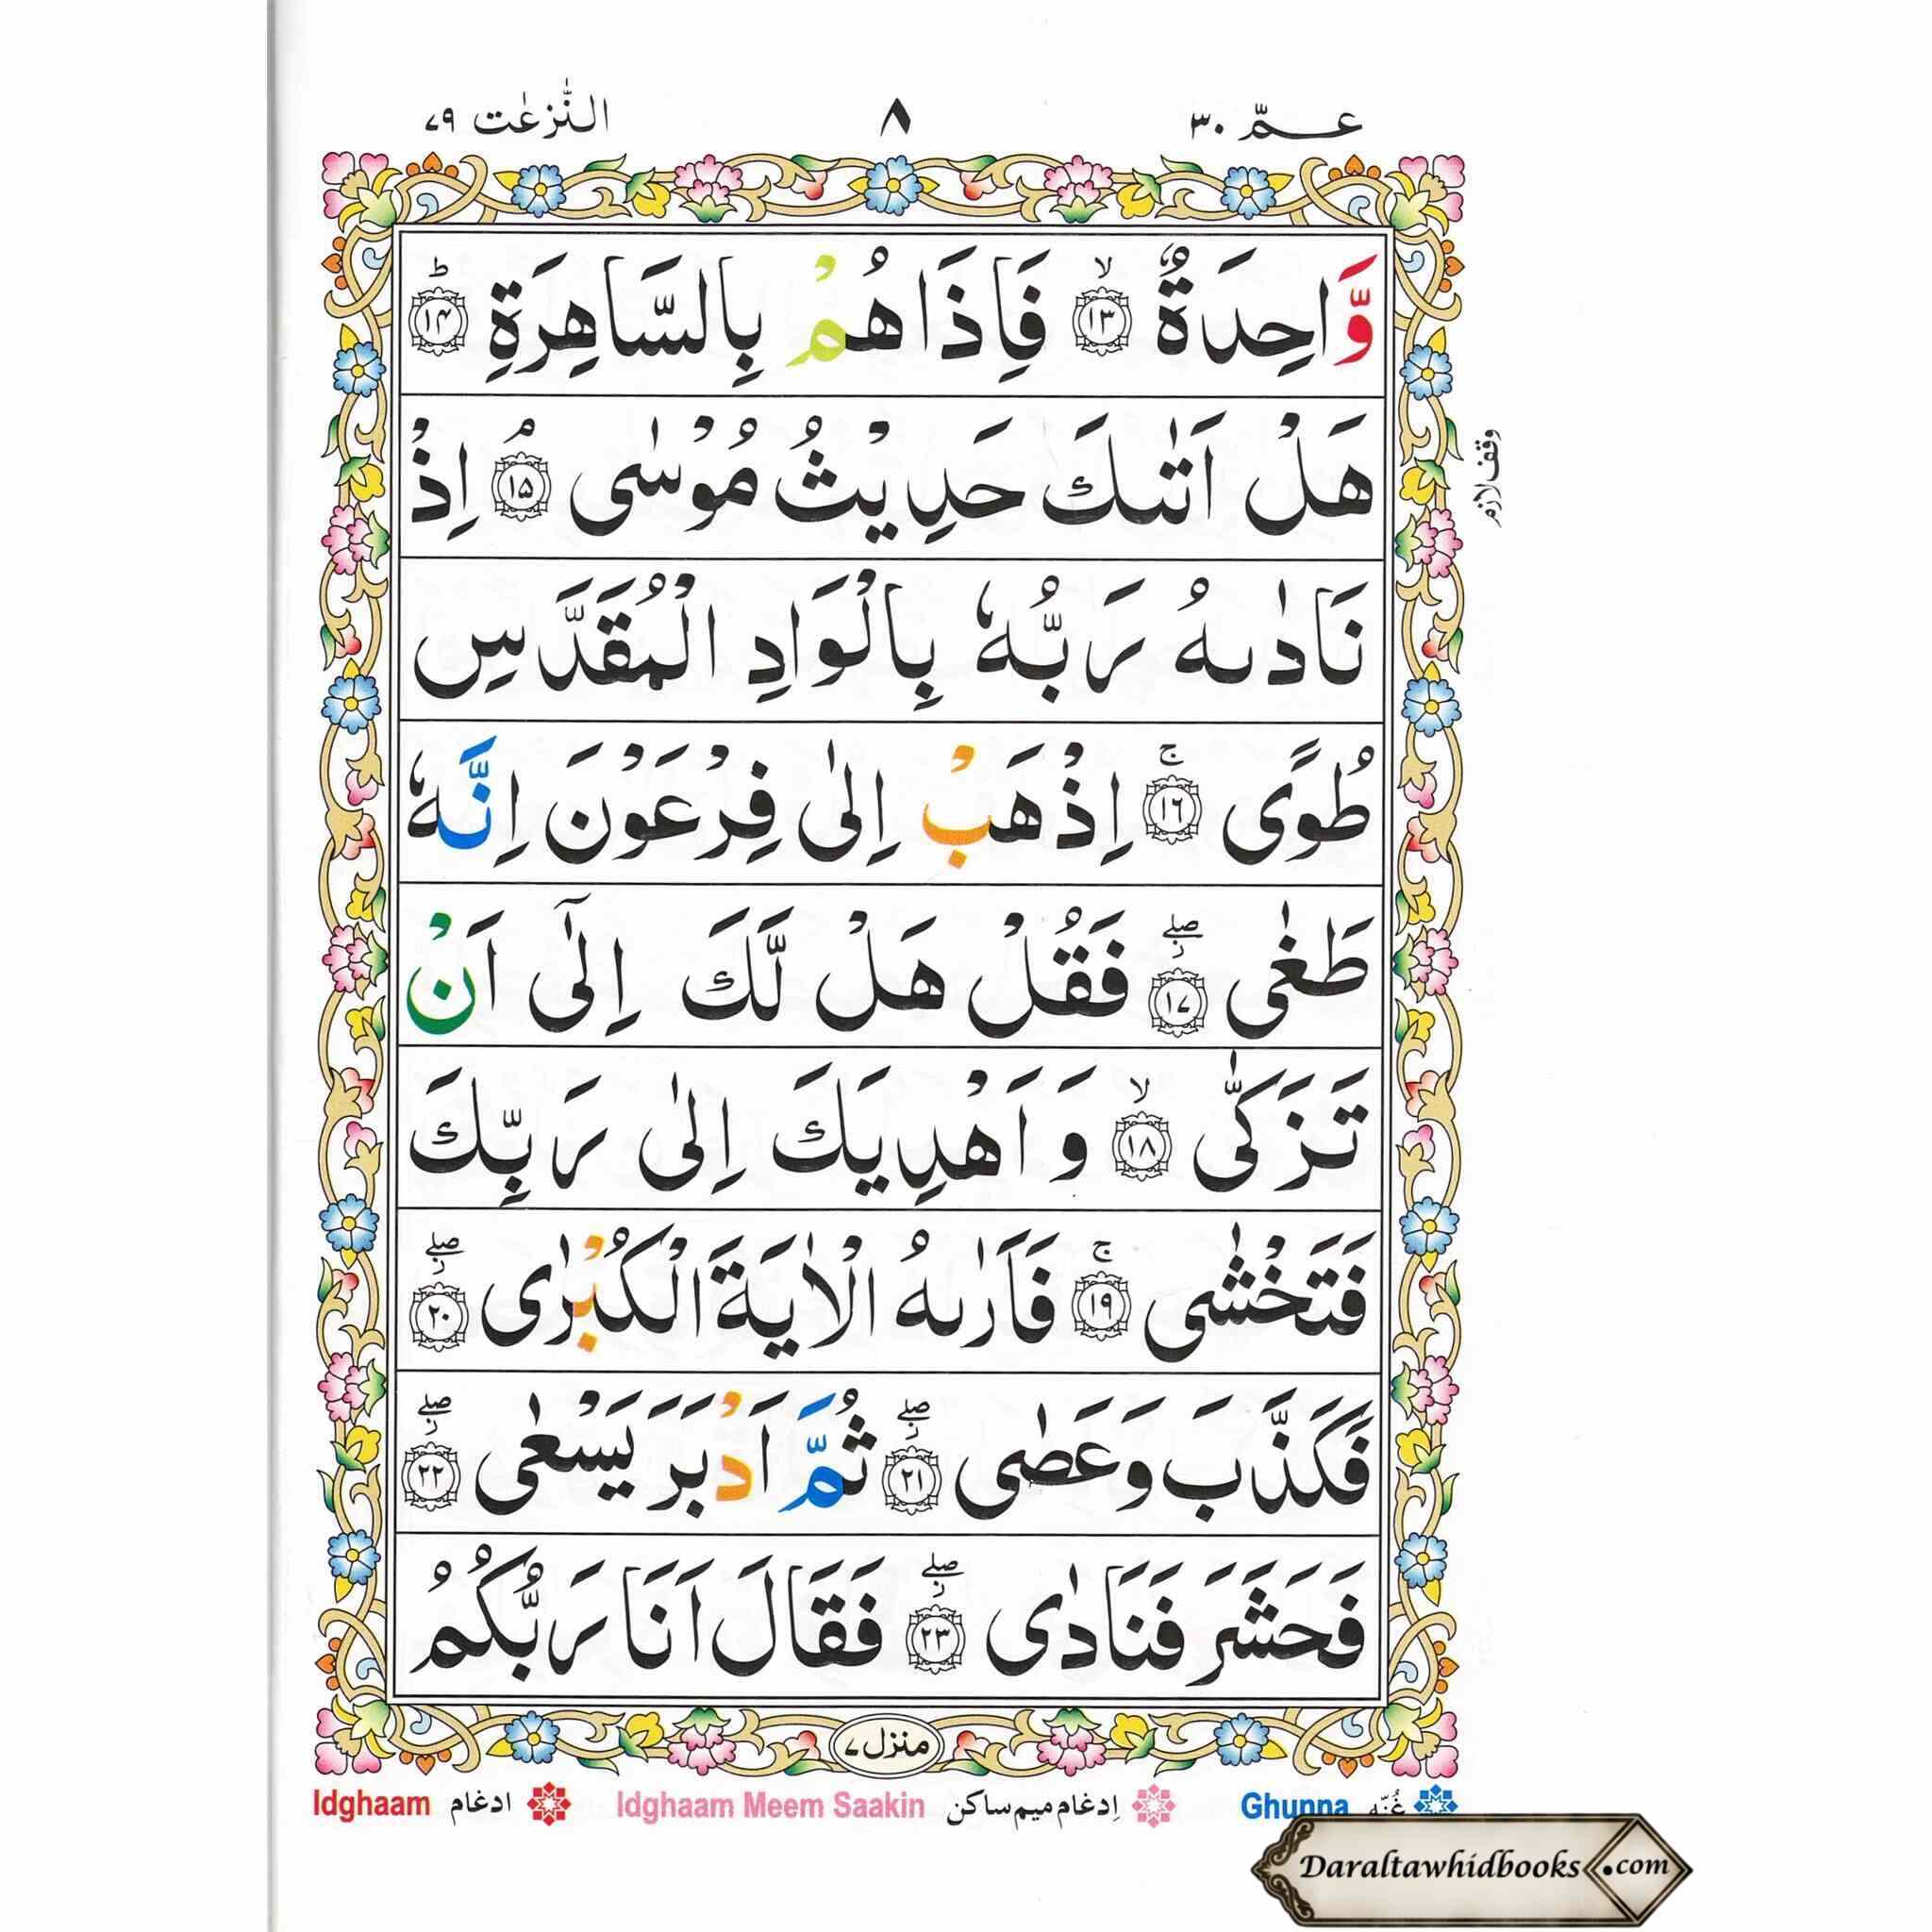 عـمّ ٣٠ ٨ النّٰزعٰت ٧٩
وَّاحِدَةٌ ۙ﴿١٣﴾ فَاِذَا هُمْ بِالسَّاهِرَةِ ؕ﴿١٤﴾
هَلْ اَتٰىكَ حَدِيْثُ مُوْسٰى ۘ﴿١٥﴾ اِذْ
وقف لازم
نَادٰىهُ رَبُّهٗ بِالْوَادِ الْمُقَدَّسِ
طُوًى ۚ﴿١٦﴾ اِذْهَبْ اِلٰى فِرْعَوْنَ اِنَّهٗ
طَغٰى ۖ﴿١٧﴾ فَقُلْ هَلْ لَّكَ اِلٰٓى اَنْ
تَزَكّٰى ۙ﴿١٨﴾ وَاَهْدِيَكَ اِلٰى رَبِّكَ
فَتَخْشٰى ۚ﴿١٩﴾ فَاَرٰىهُ الْاٰيَةَ الْكُبْرٰى ۖ﴿٢٠﴾
فَكَذَّبَ وَعَصٰى ۖ﴿٢١﴾ ثُمَّ اَدْبَرَ يَسْعٰى ۖ﴿٢٢﴾
فَحَشَرَ فَنَادٰى ۖ﴿٢٣﴾ فَقَالَ اَنَا رَبُّكُمُ
منزل ٧
Idghaam ادغام Idghaam Meem Saakin اِدغام میم ساکن Ghunna غُنّه
Daraltawhidbooks.com